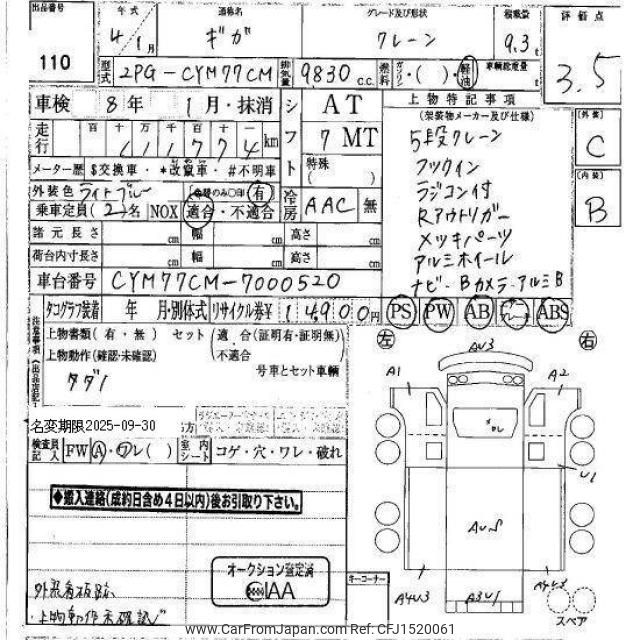 出品番号
110
年式
4/1月
通称名
ギガ
グレード及び形状
クレーン
積載量
9.3 t
評価点
3.5
型式
2PG-CYM77CM
排気量
9830 c.c.
燃料
ガソリン・( )・軽油
車輌総重量
t
車検 8年 1月・抹消
走行
百 十 万 千 百 十
111774 km
シフト
AT
7 MT
特殊
( )
上物特記事項
(架装物メーカー及び仕様)
5段クレーン
フックイン
ラジコン付
Rアウトリガー
メッキパーツ
アルミホイール
ナビ・Bカメラ・アルミB
[外装]
C
[内装]
B
メーター歴 $交換車・*改竄車・#不明車
外装色 ライトブルー
有
乗車定員(2)名 NOX 適合・不適合
冷房
AAC 無
諸元長さ cm 幅 cm 高さ cm
荷台内寸長さ cm 幅 cm 高さ cm
車台番号 CYM77CM-7000520
タコグラフ装着 年 月・別体式 リサイクル券¥ 14,900円
PS PW AB エアー ABS
注意事項(出品店記入)
上物書類(有・無) セット(適合(証明有・証明無)
不適合
上物動作(確認・未確認)
号車とセット車輌
タダノ
名変期限2025-09-30
検査員記入
FW A・ワレ( )
室内シート
コゲ・穴・ワレ・破れ
◆搬入連絡(成約日含め4日以内)後お引取り下さい。
オークション査定済
IAA
キーコーナー
外装看板跡
・上物動作未確認
左
右
AU3
A1
A2
U1
AUS
A4U3
A3U1
スペア
www.CarFromJapan.com Ref: CFJ1520061